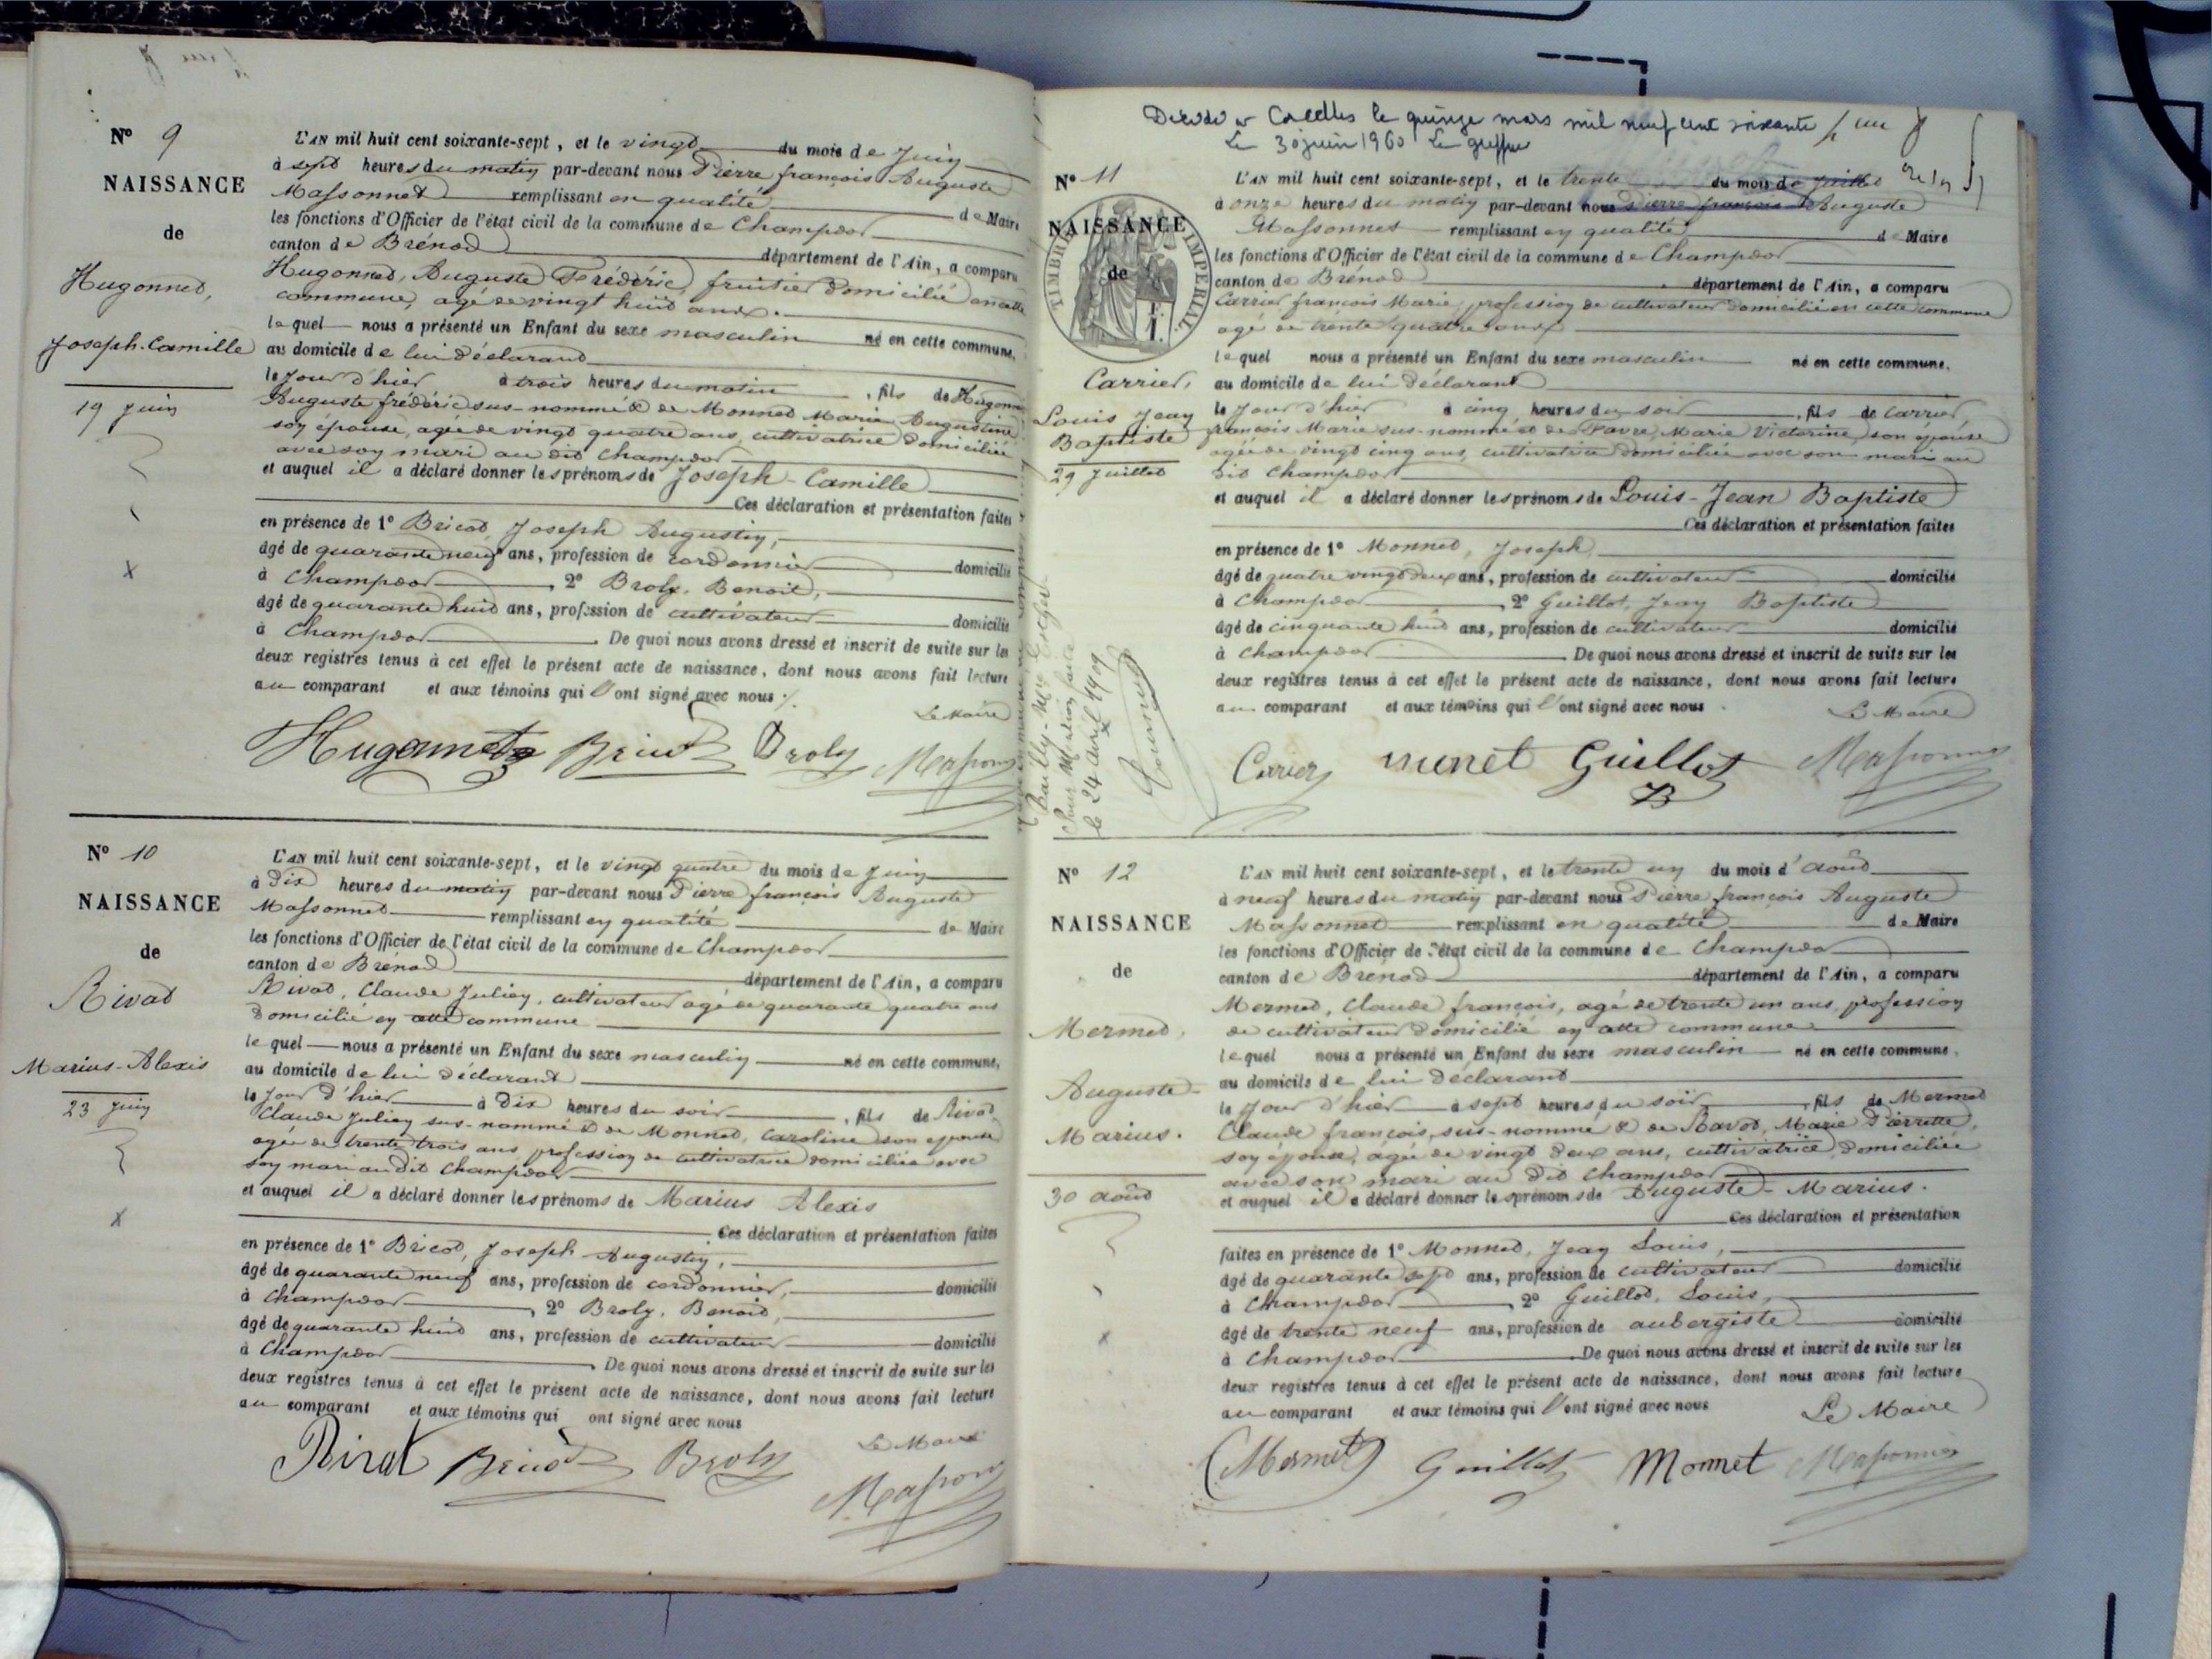 N° 9
NAISSANCE
de
Hugonnet,
Joseph-Camille
19 Juin
L'AN mil huit cent soixante-sept, et le vingt du mois de Juin
à sept heures du matin par-devant nous Pierre françois Auguste
Massonnet remplissant en qualité de Maire
les fonctions d'Officier de l'état civil de la commune de Champdor
canton de Brénod département de l'Ain, a comparu
Hugonnet, Auguste Frédéric, fruitier domicilié en cette
commune, agé de vingt huit ans.
lequel nous a présenté un Enfant du sexe masculin né en cette commune,
au domicile de lui déclarant
le jour d'hier à trois heures du matin, fils de Hugonnet
Auguste frédéric sus-nommé & de Monnet Marie Augustine
son épouse, agée de vingt quatre ans, cultivatrice domiciliée
avec son mari au dit Champdor
et auquel il a déclaré donner les prénoms de Joseph-Camille
Ces déclaration et présentation faites
en présence de 1° Bricod, Joseph Augustin,
âgé de quarante neuf ans, profession de cordonnier domicilié
à Champdor, 2° Broly, Benoit,
âgé de quarante huit ans, profession de cultivateur domicilié
à Champdor. De quoi nous avons dressé et inscrit de suite sur les
deux registres tenus à cet effet le présent acte de naissance, dont nous avons fait lecture
au comparant et aux témoins qui l'ont signé avec nous ./.
Le Maire
Hugonnet Bricod Broly Massonnet
N° 10
NAISSANCE
de
Rivat
Marius-Alexis
23 Juin
L'AN mil huit cent soixante-sept, et le vingt quatre du mois de Juin
à Dix heures du matin par-devant nous Pierre françois Auguste
Massonnet remplissant en qualité de Maire
les fonctions d'Officier de l'état civil de la commune de Champdor
canton de Brénod département de l'Ain, a comparu
Rivat, Claude Julien, cultivateur agé de quarante quatre ans
domicilié en cette commune
lequel nous a présenté un Enfant du sexe masculin né en cette commune,
au domicile de lui déclarant
le jour d'hier à Dix heures du soir, fils de Rivat
Claude Julien sus-nommé & de Monnet, Caroline son épouse
agée de trente trois ans, profession de cultivatrice domiciliée avec
son mari au dit Champdor
et auquel il a déclaré donner les prénoms de Marius Alexis
Ces déclaration et présentation faites
en présence de 1° Bricod, Joseph Augustin,
âgé de quarante neuf ans, profession de cordonnier, domicilié
à Champdor, 2° Broly, Benoit,
âgé de quarante huit ans, profession de cultivateur domicilié
à Champdor. De quoi nous avons dressé et inscrit de suite sur les
deux registres tenus à cet effet le présent acte de naissance, dont nous avons fait lecture
au comparant et aux témoins qui ont signé avec nous
Le Maire
Rivat Bricod Broly Massonnet
Décédé à Corcelles le quinze mars mil neuf cent soixante
Le 30 juin 1960 Le greffier
N° 11
NAISSANCE
de
TIMBRE IMPÉRIAL
Carrier,
Louis Jean
Baptiste
29 Juillet
L'AN mil huit cent soixante-sept, et le trente du mois de Juillet
à onze heures du matin par-devant nous Pierre françois Auguste
Massonnet remplissant en qualité de Maire
les fonctions d'Officier de l'état civil de la commune de Champdor
canton de Brénod département de l'Ain, a comparu
Carrier françois Marie, profession de cultivateur domicilié en cette commune
agé de trente quatre ans
lequel nous a présenté un Enfant du sexe masculin né en cette commune.
au domicile de lui déclarant
le jour d'hier à cinq heures du soir, fils de Carrier
françois Marie sus-nommé et de Favre, Marie Victorine, son épouse
agée de vingt cinq ans, cultivatrice domiciliée avec son mari au
dit Champdor
et auquel il a déclaré donner les prénoms de Louis-Jean Baptiste
Ces déclaration et présentation faites
en présence de 1° Monnet, Joseph,
âgé de quatre vingt deux ans, profession de cultivateur domicilié
à Champdor, 2° Guillot, Jean Baptiste
âgé de cinquante huit ans, profession de cultivateur domicilié
à Champdor. De quoi nous avons dressé et inscrit de suite sur les
deux registres tenus à cet effet le présent acte de naissance, dont nous avons fait lecture
au comparant et aux témoins qui l'ont signé avec nous
Le Maire
Carrier monet Guillot JB Massonnet
Bailly-
Pour Mention faite
le 24 avril 1909
N° 12
NAISSANCE
de
Mermet,
Auguste-
Marius.
30 août
L'AN mil huit cent soixante-sept, et le trente un du mois d'août
à neuf heures du matin par-devant nous Pierre françois Auguste
Massonnet remplissant en qualité de Maire
les fonctions d'Officier de l'état civil de la commune de Champdor
canton de Brénod département de l'Ain, a comparu
Mermet, Claude françois, agé de trente un ans, profession
de cultivateur domicilié en cette commune
lequel nous a présenté un Enfant du sexe masculin né en cette commune.
au domicile de lui déclarant
le jour d'hier à sept heures du soir, fils de Mermet
Claude françois, sus-nommé & de Ravot, Marie Pierrette,
son épouse, agée de vingt deux ans, cultivatrice, domiciliée
avec son mari au dit Champdor
et auquel il a déclaré donner les prénoms de Auguste-Marius.
Ces déclaration et présentation
faites en présence de 1° Monnet, Jean Louis,
âgé de quarante sept ans, profession de cultivateur domicilié
à Champdor, 2° Guillot, Louis,
âgé de trente neuf ans, profession de aubergiste domicilié
à Champdor. De quoi nous avons dressé et inscrit de suite sur les
deux registres tenus à cet effet le présent acte de naissance, dont nous avons fait lecture
au comparant et aux témoins qui l'ont signé avec nous
Le Maire
Mermet Guillot Monnet Massonnet